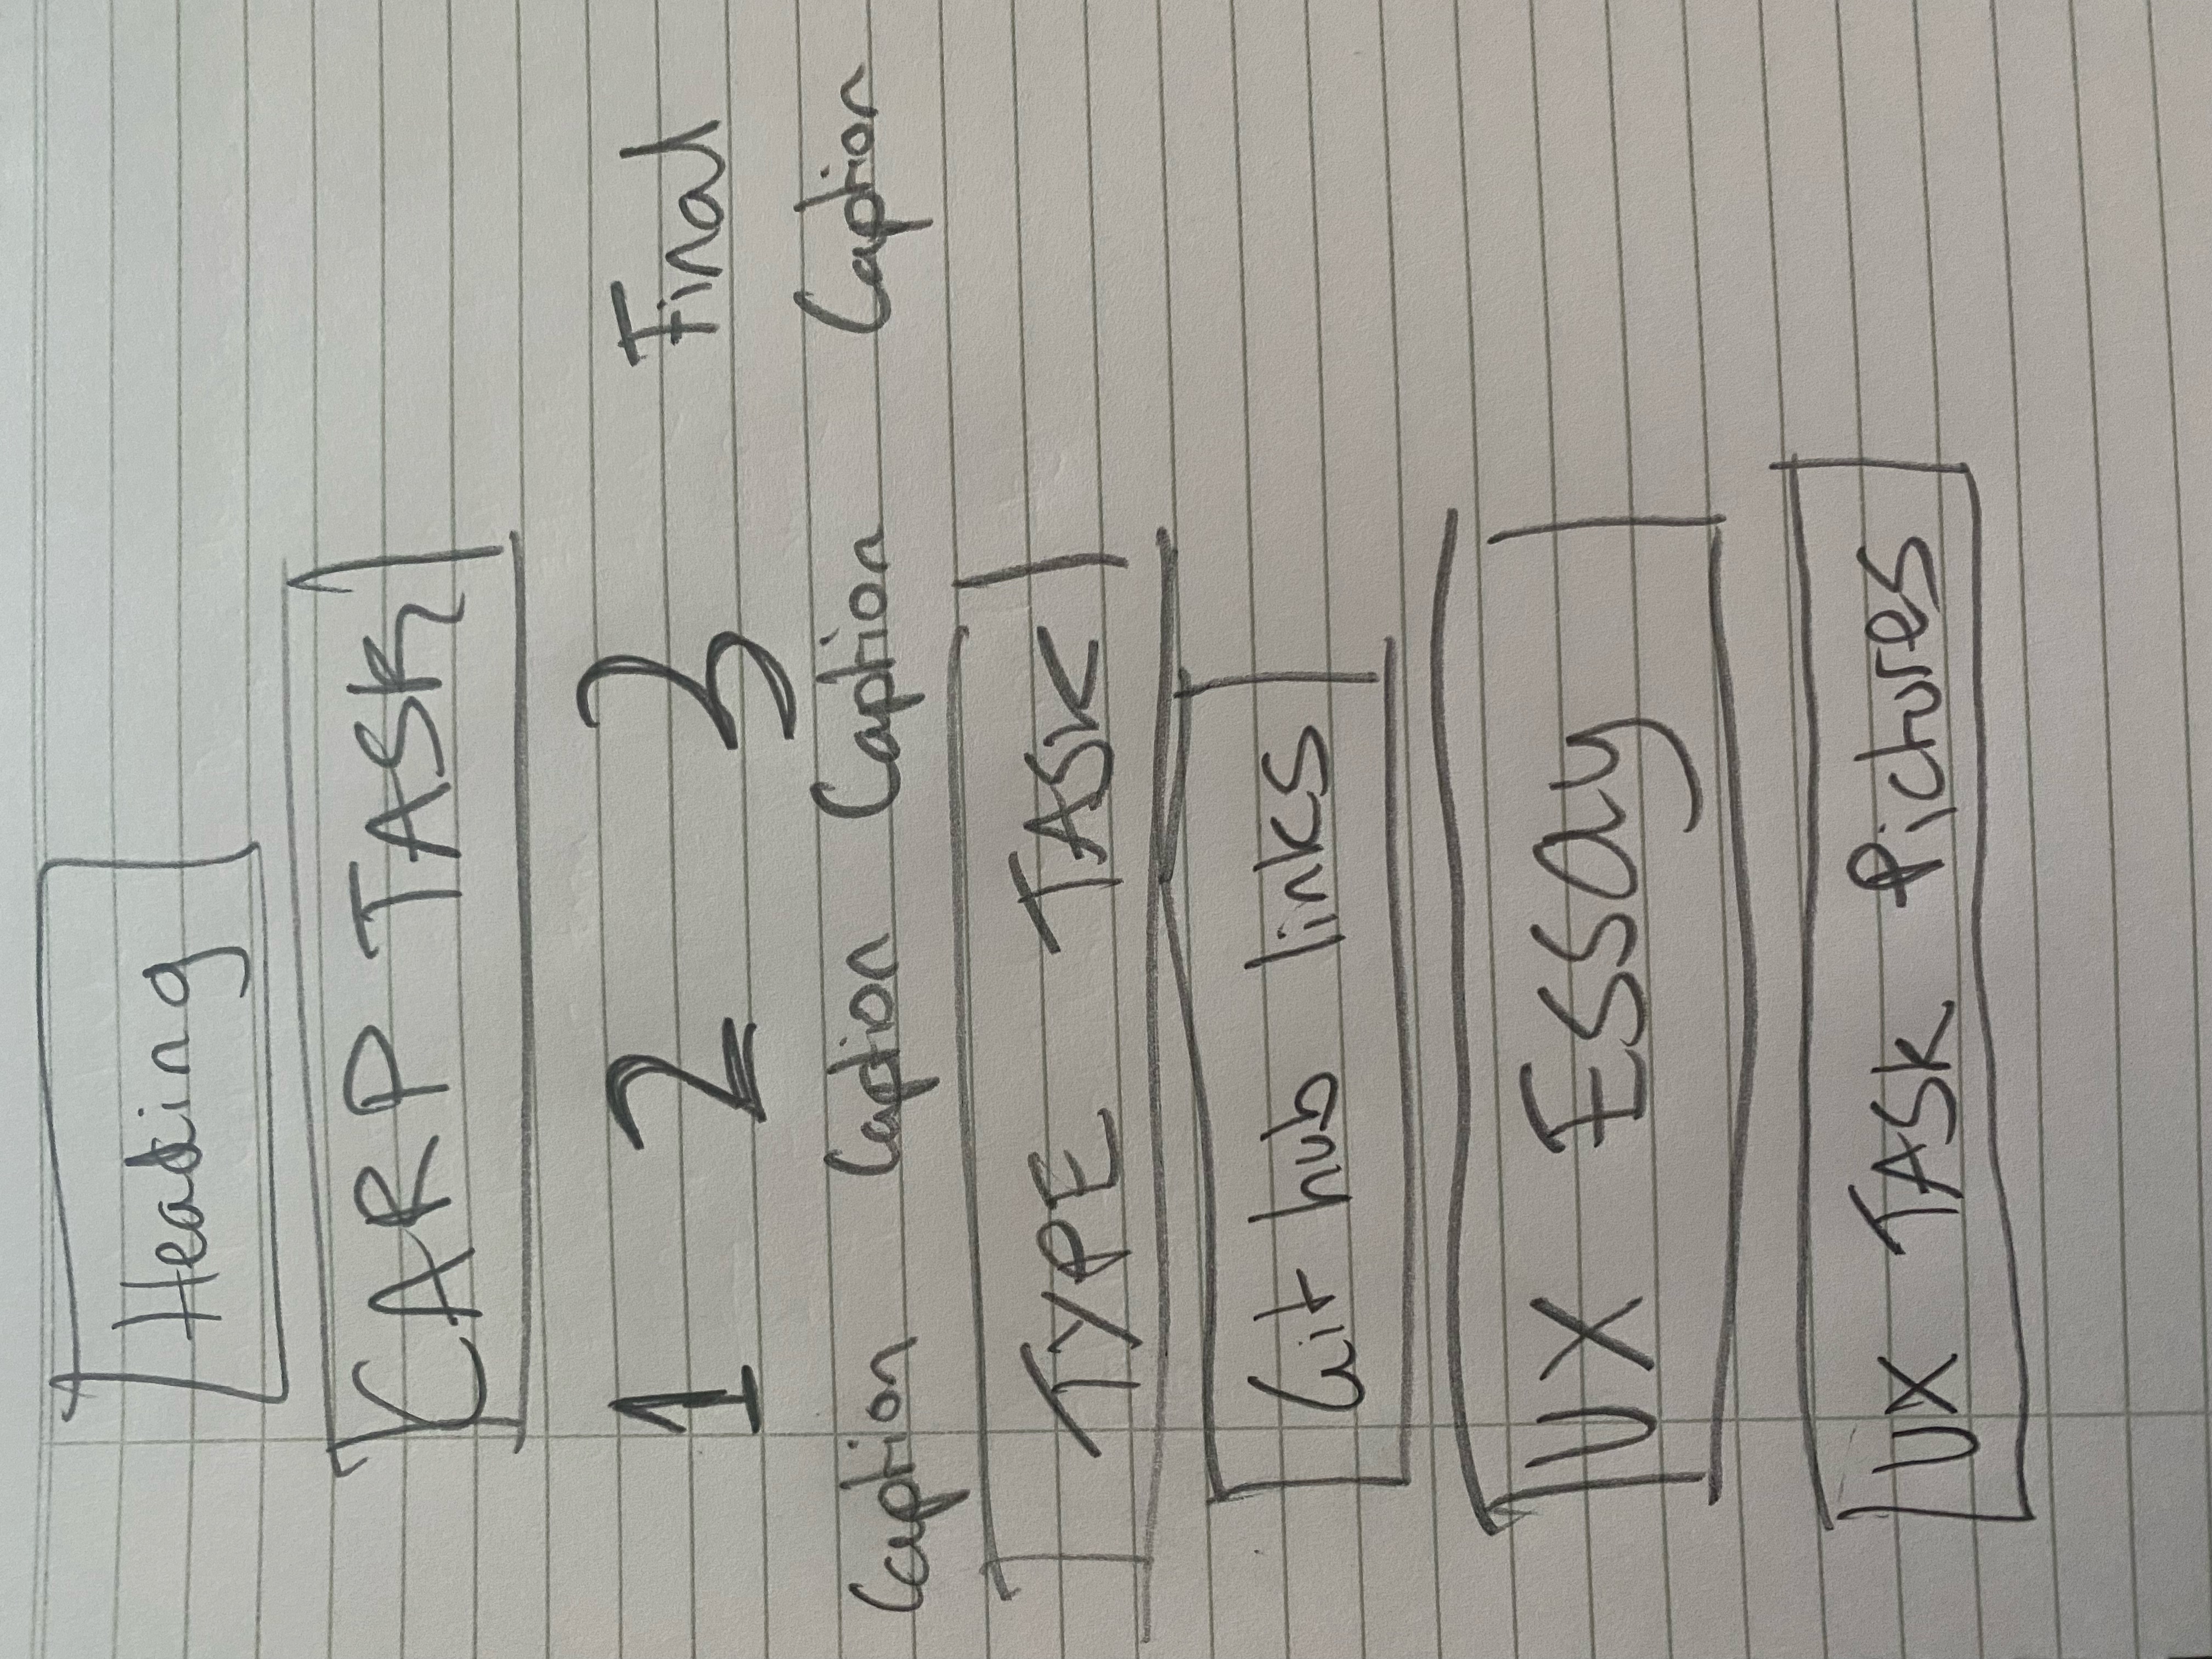 Heading
CARP TASK
1 2 3 Final
Caption Caption Caption Caption
TYPE TASK
Git hub links
UX Essay
UX TASK Pictures